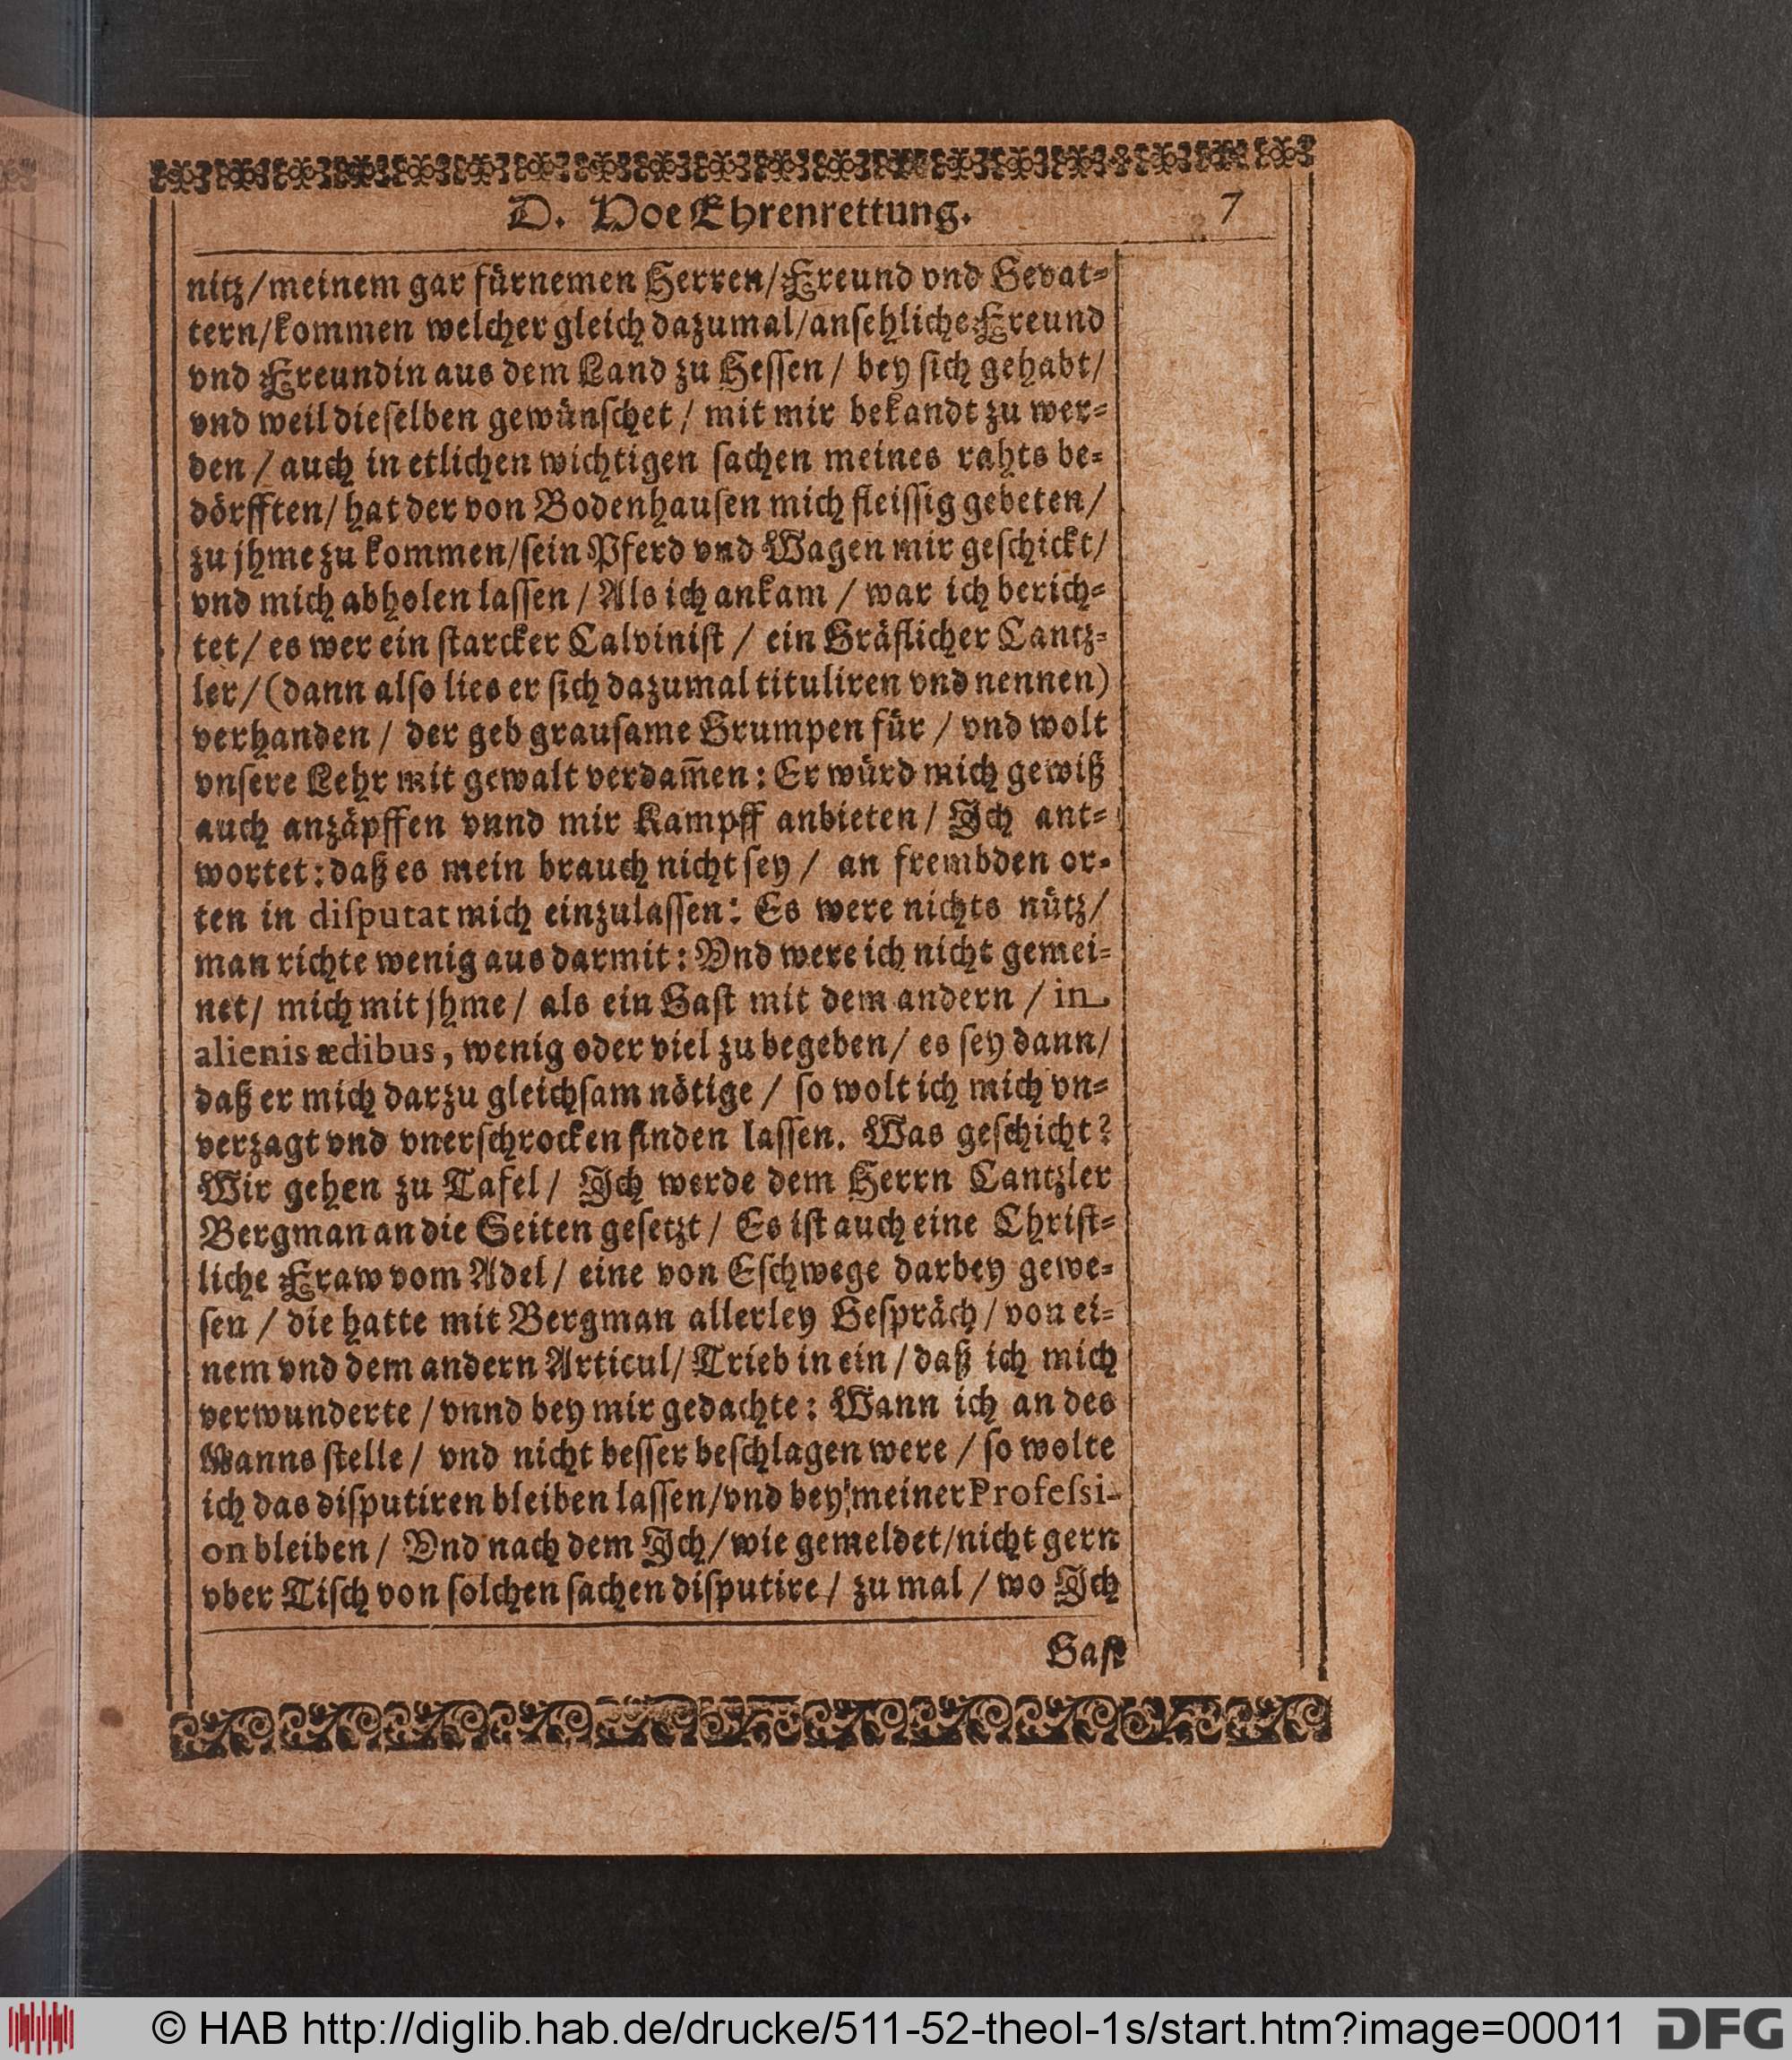 D. Hoe Ehrenrettung. 7
nitz/meinem gar fürnemen Herren/Freund vnd Gevat-
tern/kommen welcher gleich dazumal/ansehliche Freund
vnd Freundin aus dem Land zu Hessen/ bey sich gehabt/
vnd weil dieselben gewünschet/ mit mir bekandt zu wer-
den/ auch in etlichen wichtigen sachen meines rahts be-
dörfften/ hat der von Bodenhausen mich fleissig gebeten/
zu jhme zu kommen/sein Pferd vnd Wagen mir geschickt/
vnd mich abholen lassen/ Als ich ankam/ war ich berich-
tet/ es wer ein starcker Calvinist/ ein Gräflicher Cantz-
ler/ (dann also lies er sich dazumal tituliren vnd nennen)
verhanden/ der geb grausame Grumpen für/ vnd wolt
vnsere Lehr mit gewalt verdam̄en: Er würd mich gewiß
auch anzäpffen vnnd mir Kampff anbieten/ Ich ant-
wortet: daß es mein brauch nicht sey/ an frembden or-
ten in disputat mich einzulassen: Es were nichts nütz/
man richte wenig aus darmit: Vnd were ich nicht gemei-
net/ mich mit jhme/ als ein Gast mit dem andern/ in
alienis ædibus, wenig oder viel zu begeben/ es sey dann/
daß er mich darzu gleichsam nötige/ so wolt ich mich vn-
verzagt vnd vnerschrocken finden lassen. Was geschicht?
Wir gehen zu Tafel/ Ich werde dem Herrn Cantzler
Bergman an die Seiten gesetzt/ Es ist auch eine Christ-
liche Fraw vom Adel/ eine von Eschwege darbey gewe-
sen/ die hatte mit Bergman allerley Gespräch/ von ei-
nem vnd dem andern Articul/ Trieb in ein/ daß ich mich
verwunderte/ vnnd bey mir gedachte: Wann ich an des
Manns stelle/ vnd nicht besser beschlagen were/ so wolte
ich das disputiren bleiben lassen/vnd bey meiner Professi-
on bleiben/ Vnd nach dem Ich/wie gemeldet/nicht gern
vber Tisch von solchen sachen disputire/ zu mal/ wo Ich
Gast
© HAB http://diglib.hab.de/drucke/511-52-theol-1s/start.htm?image=00011 DFG